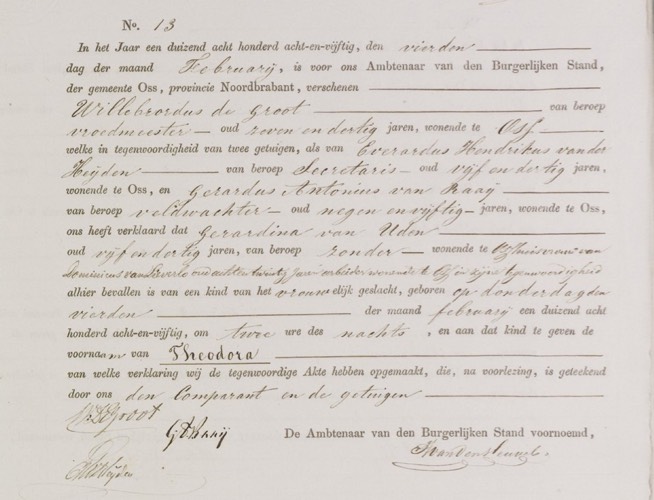 No. 13
In het Jaar een duizend acht honderd acht-en-vijftig, den vierden
dag der maand Februarij, is voor ons Ambtenaar van den Burgerlijken Stand,
der gemeente Oss, provincie Noordbrabant, verschenen
Willebrordus de Groot van beroep
vroedmeester oud zeven en dertig jaren, wonende te Oss
welke in tegenwoordigheid van twee getuigen, als van Everardus Hendrikus van der
Heijden van beroep Secretaris oud vijf en dertig jaren,
wonende te Oss, en Gerardus Antonius van Raaij
van beroep veldwachter oud negen en vijftig jaren, wonende te Oss,
ons heeft verklaard dat Gerardina van Uden
oud vijf en dertig jaren, van beroep zonder wonende te Oss huisvrouw van
Dominicus van oud acht en twintig jaar arbeider wonende te Oss en zijne tegenwoordigheid
alhier bevallen is van een kind van het vrouwelijk geslacht, geboren op donderdag den
vierden der maand februarij een duizend acht
honderd acht-en-vijftig, om twee ure des nachts, en aan dat kind te geven de
voornaam van Theodora
van welke verklaring wij de tegenwoordige Akte hebben opgemaakt, die, na voorlezing, is geteekend
door ons den Comparant en de getuigen
W. De Groot
G A Raaij
De Ambtenaar van den Burgerlijken Stand voornoemd,